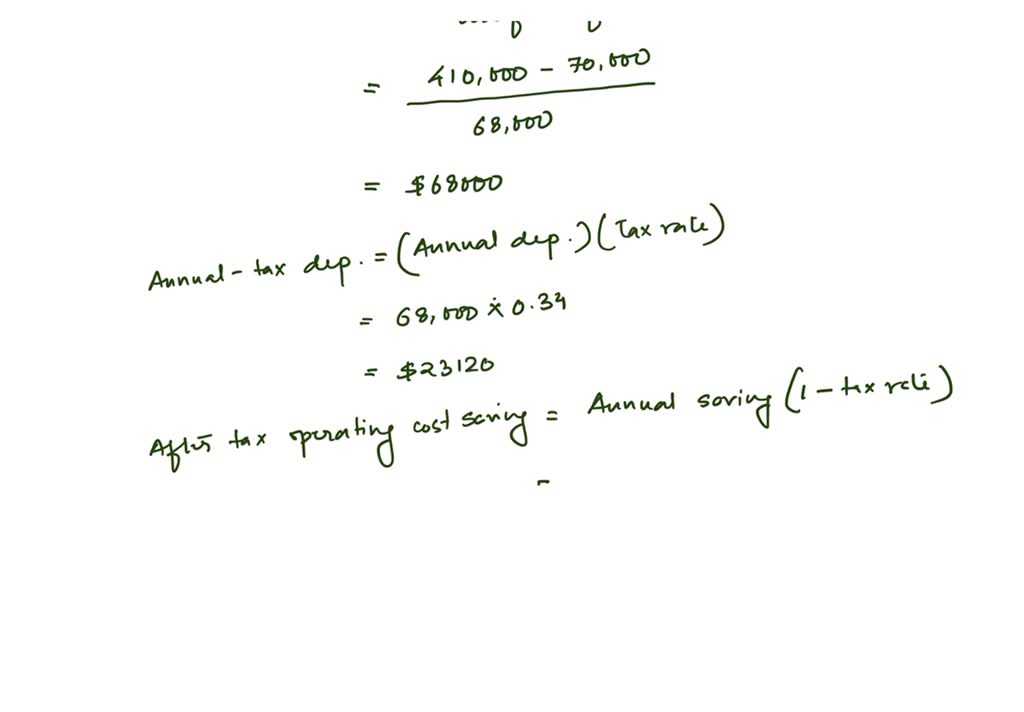 = 410,000 - 70,000
68,000
= $68000
Annual - tax dep. = (Annual dep.) (Tax rate)
= 68,000 × 0.34
= $23120
After tax operating cost saving = Annual saving (1 - tax rate)
=